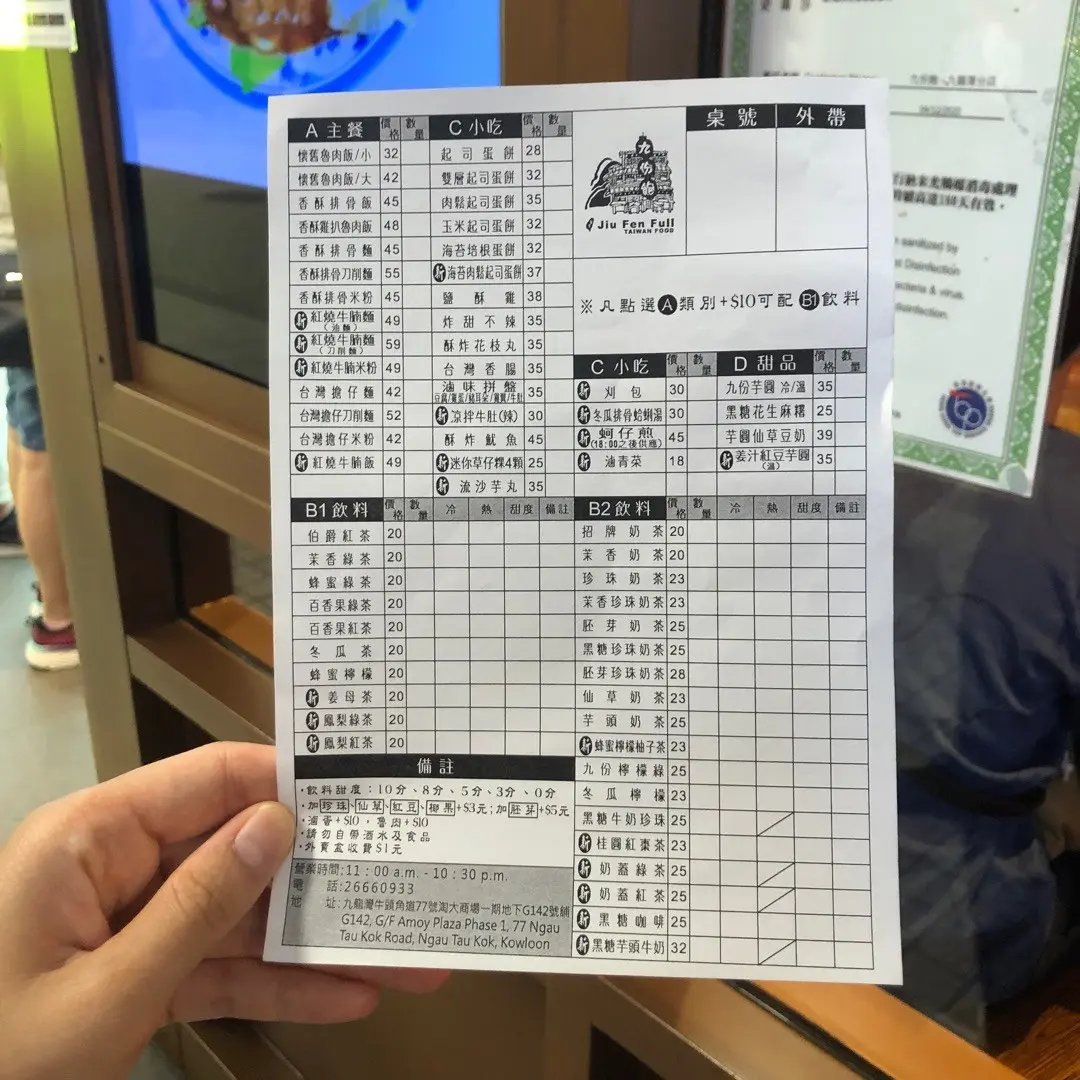 A 主餐 價格 數量
懷舊魯肉飯/小 32
懷舊魯肉飯/大 42
香酥排骨飯 45
香酥雞扒魯肉飯 48
香酥排骨麵 45
香酥排骨刀削麵 55
香酥排骨米粉 45
新 紅燒牛腩麵 (油麵) 49
新 紅燒牛腩麵 (刀削麵) 59
新 紅燒牛腩米粉 49
台灣擔仔麵 42
台灣擔仔刀削麵 52
台灣擔仔米粉 42
新 紅燒牛腩飯 49
C 小吃 價格 數量
起司蛋餅 28
雙層起司蛋餅 32
肉鬆起司蛋餅 35
玉米起司蛋餅 32
海苔培根蛋餅 32
新 海苔肉鬆起司蛋餅 37
鹽酥雞 38
炸甜不辣 35
酥炸花枝丸 35
台灣香腸 35
滷味拼盤 35
新 涼拌牛肚(辣) 30
酥炸魷魚 45
新 迷你草仔粿4顆 25
新 流沙芋丸 35
九份餔
Jiu Fen Full
TAIWAN FOOD
桌號 外帶
※凡點選A類別+$10可配B1飲料
C 小吃 價格 數量
新 刈包 30
新 冬瓜排骨蛤蜊湯 30
新 蚵仔煎 (18:00之後供應) 45
新 滷青菜 18
D 甜品 價格 數量
九份芋圓 冷/溫 35
黑糖花生麻糬 25
芋圓仙草豆奶 39
新 姜汁紅豆芋圓 (溫) 35
B1飲料 價格 數量 冷 熱 甜度 備註
伯爵紅茶 20
茉香綠茶 20
蜂蜜綠茶 20
百香果綠茶 20
百香果紅茶 20
冬瓜茶 20
蜂蜜檸檬 20
新 姜母茶 20
新 鳳梨綠茶 20
新 鳳梨紅茶 20
B2飲料 價格 數量 冷 熱 甜度 備註
招牌奶茶 20
茉香奶茶 20
珍珠奶茶 23
茉香珍珠奶茶 23
胚芽奶茶 25
黑糖珍珠奶茶 25
胚芽珍珠奶茶 28
仙草奶茶 23
芋頭奶茶 25
新 蜂蜜檸檬柚子茶 23
九份檸檬綠 25
冬瓜檸檬 23
黑糖牛奶珍珠 25
新 桂圓紅棗茶 23
新 奶蓋綠茶 25
新 奶蓋紅茶 25
新 黑糖咖啡 25
新 黑糖芋頭牛奶 32
備註
·飲料甜度:10分、8分、5分、3分、0分
·加珍珠、仙草、紅豆、椰果+$3元;加胚芽+$5元
·滷蛋+$10,魯肉+$10
·請勿自帶酒水及食品
·外賣盒收費$1元
營業時間:11:00a.m.-10:30p.m.
電話:26660933
地址:九龍灣牛頭角道77號淘大商場一期地下G142號舖
G142, G/F Amoy Plaza Phase 1, 77 Ngau
Tau Kok Road, Ngau Tau Kok, Kowloon
sanitized by
Disinfection
bacteria & virus.